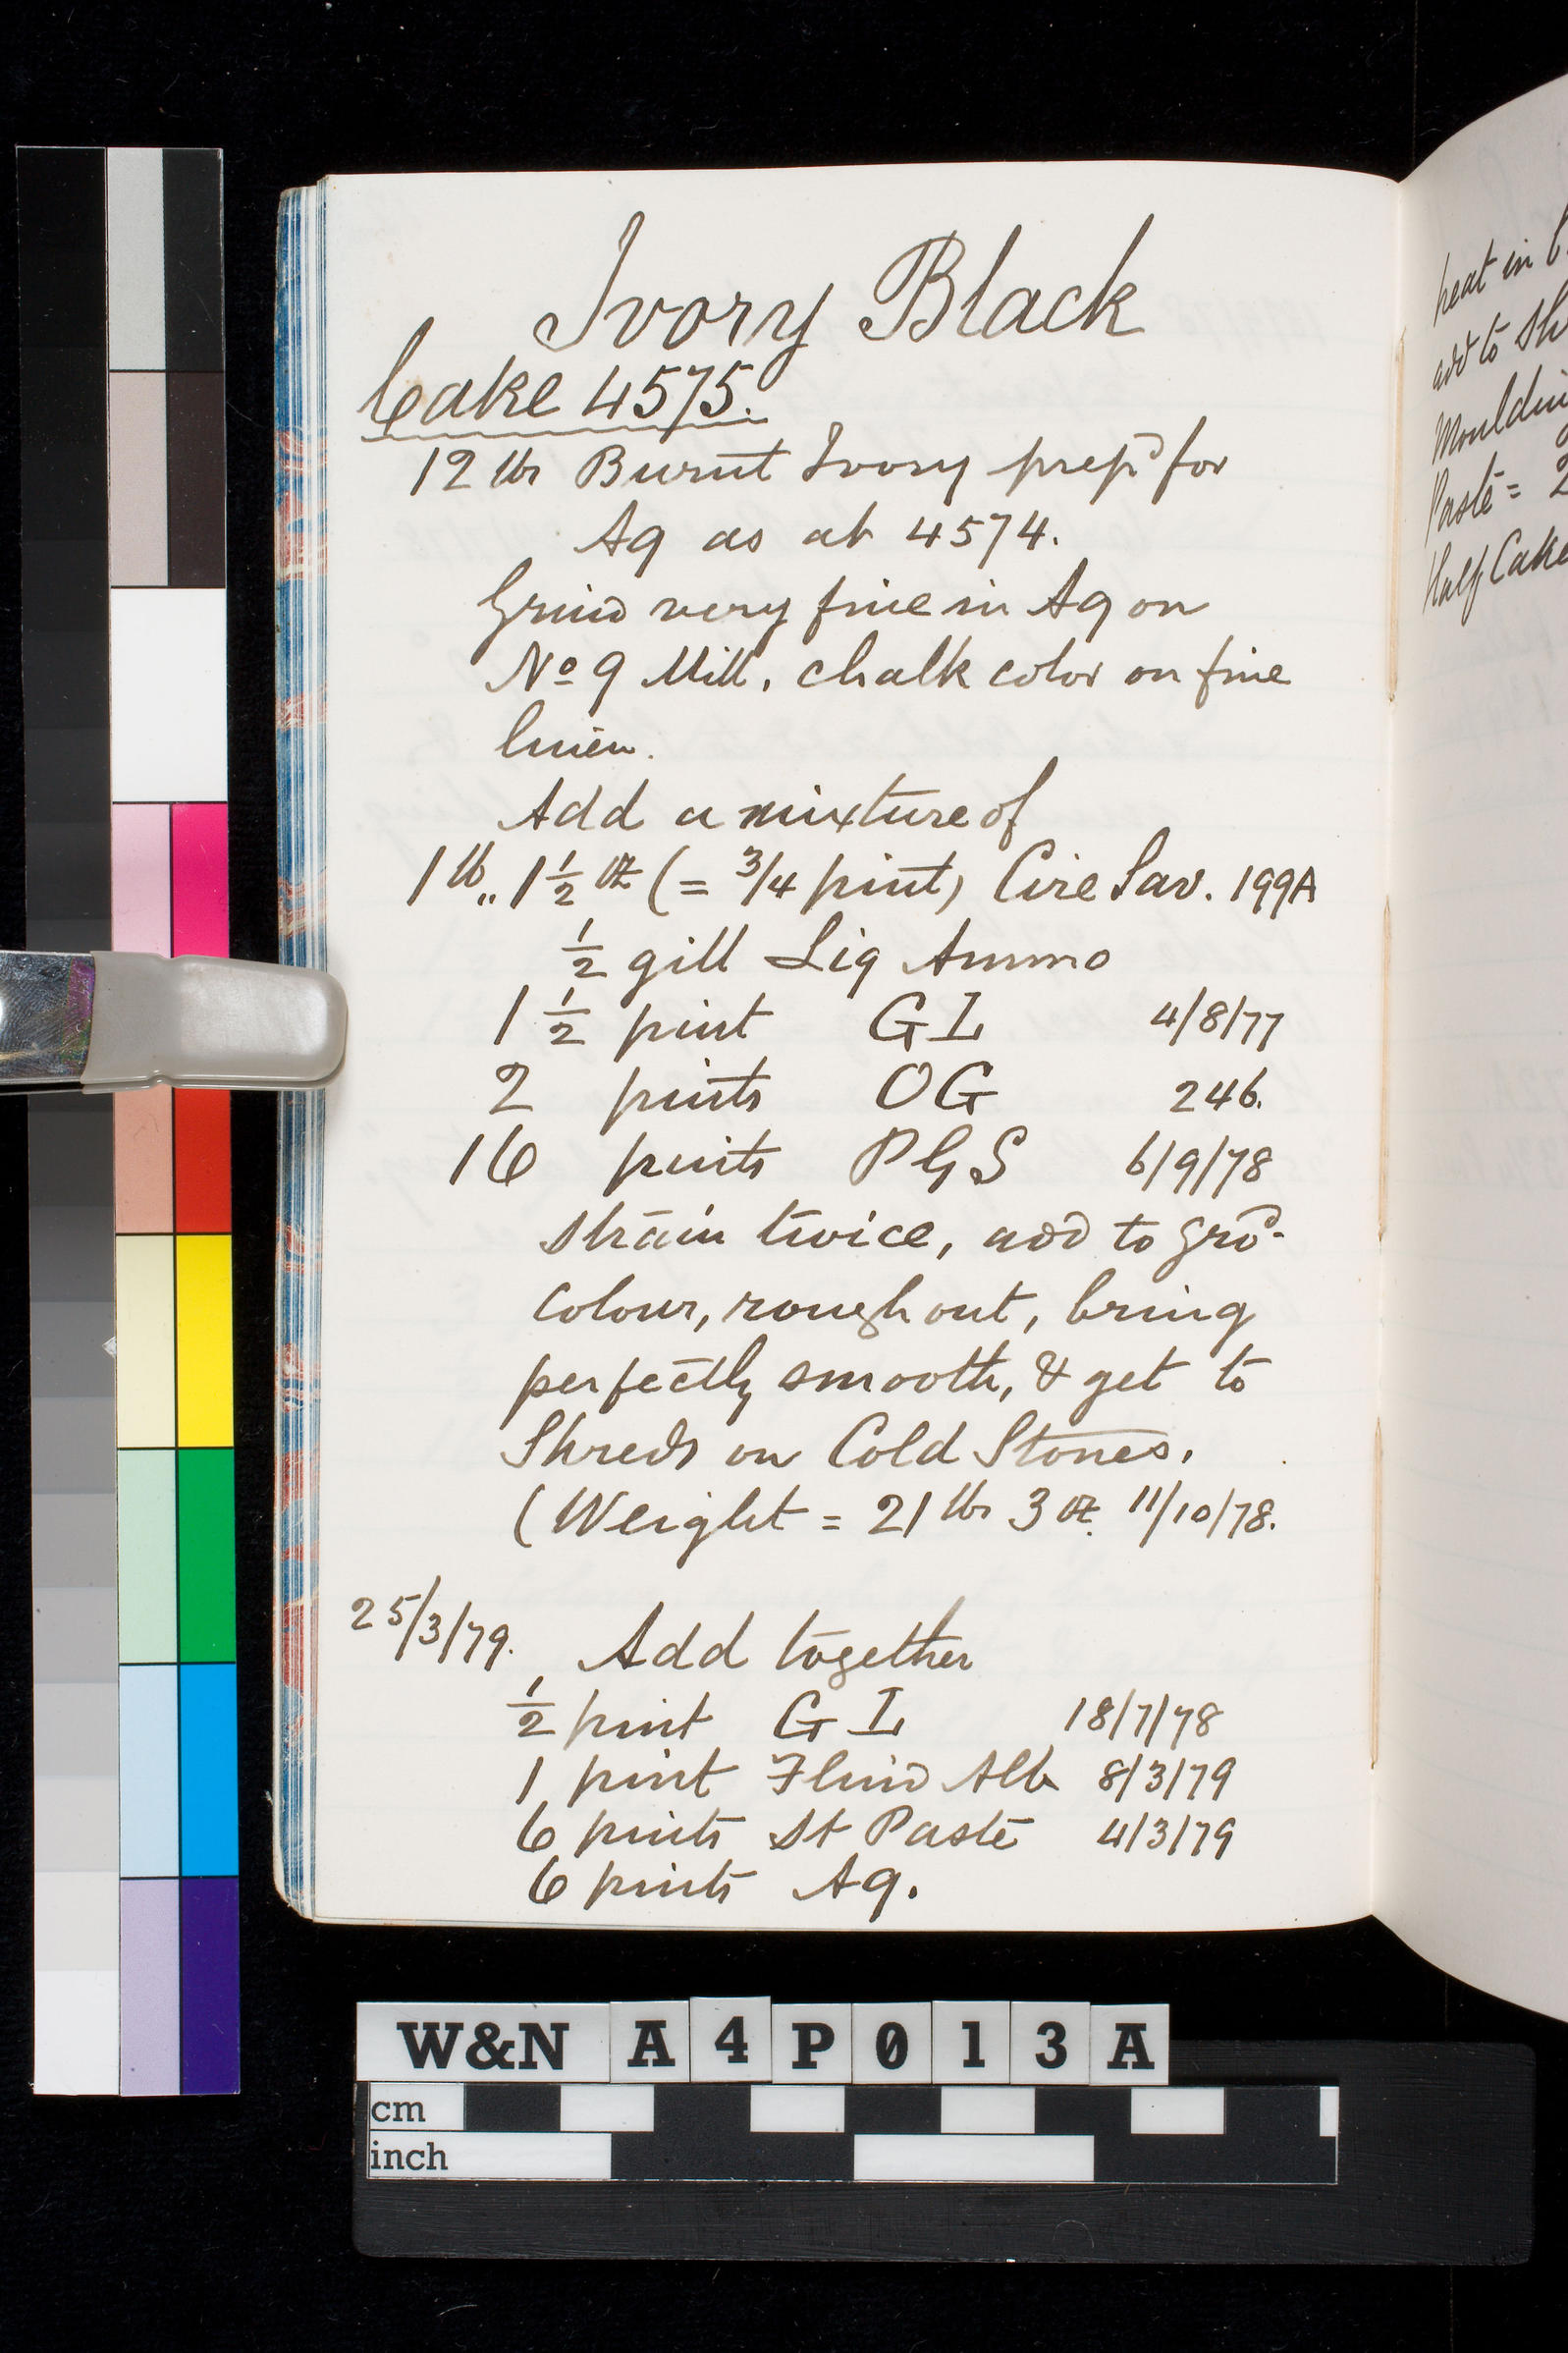 Ivory Black
Cake 4575.
12 lbs Burnt Ivory prepd for
Aq as at 4574.
Grind very fine in Aq on
No 9 Mill, chalk color on fine
linen.
Add a mixture of
1 lb,, 1 1/2 oz (= 3/4 pint) Cire Sav. 199A
1/2 gill Liq Ammo
1 1/2 pint GL 4/8/77
2 pints OG 246.
16 pints PGS 6/9/78
strain twice, add to grd.
colour, rough out, bring
perfectly smooth, & get to
Shreds on Cold Stones.
(Weight = 21 lbs 3 oz. 11/10/78.
25/3/79. Add together
1/2 pint GL 18/7/78
1 pint Fluid Alb 8/3/79
6 pints St Paste 4/3/79
6 pints Aq.
heat in
add to Sh
Mouldin
Paste = 2
Half Cake
W&N A4P013A
cm
inch